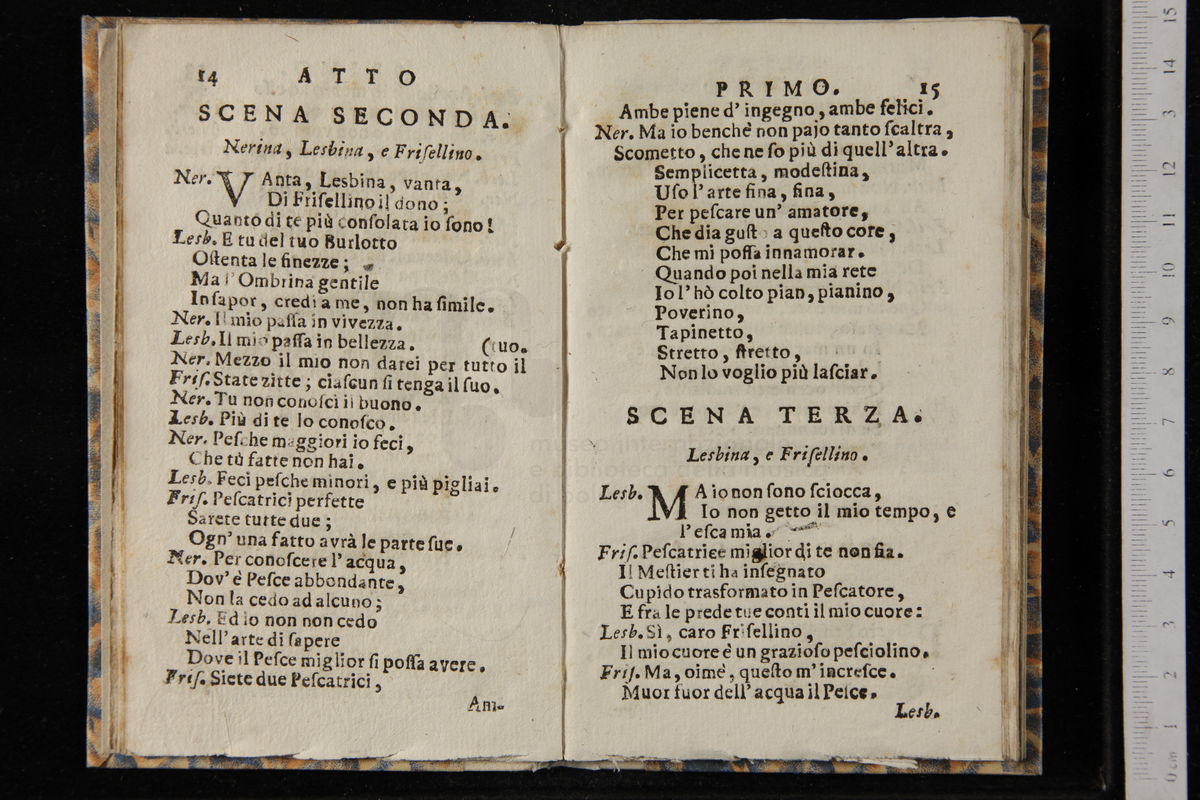 14 ATTO
SCENA SECONDA.
Nerina, Lesbina, e Friſellino.
Ner. VAnta, Lesbina, vanta,
Di Friſellino il dono;
Quanto di te più conſolata io ſono!
Lesb. E tu del tuo Burlotto
Oſtenta le finezze;
Ma l'Ombrina gentile
In ſapor, credi a me, non ha ſimile.
Ner. Il mio paſſa in vivezza.
Lesb. Il mio paſſa in bellezza. (tuo.
Ner. Mezzo il mio non darei per tutto il
Friſ. State zitte; ciaſcun ſi tenga il ſuo.
Ner. Tu non conoſci il buono.
Lesb. Più di te lo conoſco.
Ner. Peſche maggiori io feci,
Che tù fatte non hai.
Lesb. Feci peſche minori, e più pigliai.
Friſ. Peſcatrici perfette
Sarete tutte due;
Ogn' una fatto avrà le parte ſue.
Ner. Per conoſcere l'acqua,
Dov' è Peſce abbondante,
Non la cedo ad alcuno;
Lesb. Ed io non non cedo
Nell' arte di ſapere
Dove il Peſce miglior ſi poſſa avere.
Friſ. Siete due Peſcatrici,
Am-
PRIMO. 15
Ambe piene d' ingegno, ambe felici.
Ner. Ma io benchè non pajo tanto ſcaltra,
Scometto, che ne ſo più di quell' altra.
Semplicetta, modeſtina,
Uſo l'arte fina, fina,
Per peſcare un' amatore,
Che dia guſto a queſto core,
Che mi poſſa innamorar.
Quando poi nella mia rete
Io l' hò colto pian, pianino,
Poverino,
Tapinetto,
Stretto, ſtretto,
Non lo voglio più laſciar.
SCENA TERZA.
Lesbina, e Friſellino.
Lesb. MA io non ſono ſciocca,
Io non getto il mio tempo, e
l'eſca mia.
Friſ. Peſcatrice miglior di te non fia.
Il Meſtier ti ha inſegnato
Cupido trasformato in Peſcatore,
E fra le prede tue conti il mio cuore:
Lesb. Sì, caro Friſellino,
Il mio cuore è un grazioſo peſciolino.
Friſ. Ma, oimè, queſto m' increſce.
Muor fuor dell' acqua il Peſce.
Lesb.